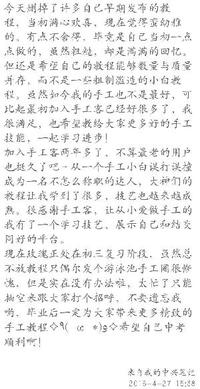 今天删掉了许多自己早期发布的教
程，当初满心欢喜，现在觉得蛮幼稚
的。有点不舍得，毕竟是自己当初一点
点做的，虽然粗糙，却是满满的回忆。
但还是希望自己的教程能够数量与质量
并存，而不是一些粗制滥造的小白教
程。虽然如今我的手工也不是最好，可
比起最初加入手工客已经好很多了，我
很满足，也希望教给大家更多好的手工
技能，一起学习进步！
加入手工客两年多了，不算最老的用户
也挺久了吧~从一个手工小白误打误撞
成为一名不怎么称职的达人，大神们的
教程让我学到了很多，技艺也越来越成
熟。很感谢手工客，让从小爱做手工的
我有了一个学习技艺，展示自己和结交
同好的平台。
现在玫瑰正处在初三复习阶段，虽然总
不放教程只偶尔发个游泳池手工圈很惭
愧，但是实在没有办法啦，太忙了只能
抽空来跟大家打个招呼，不要遗忘我
哟，毕业后一定为大家带来更多精致的
手工教程✧٩( 希望自己中考
顺利啊！
来自我的中兴笔记
2016-4-27 16:58